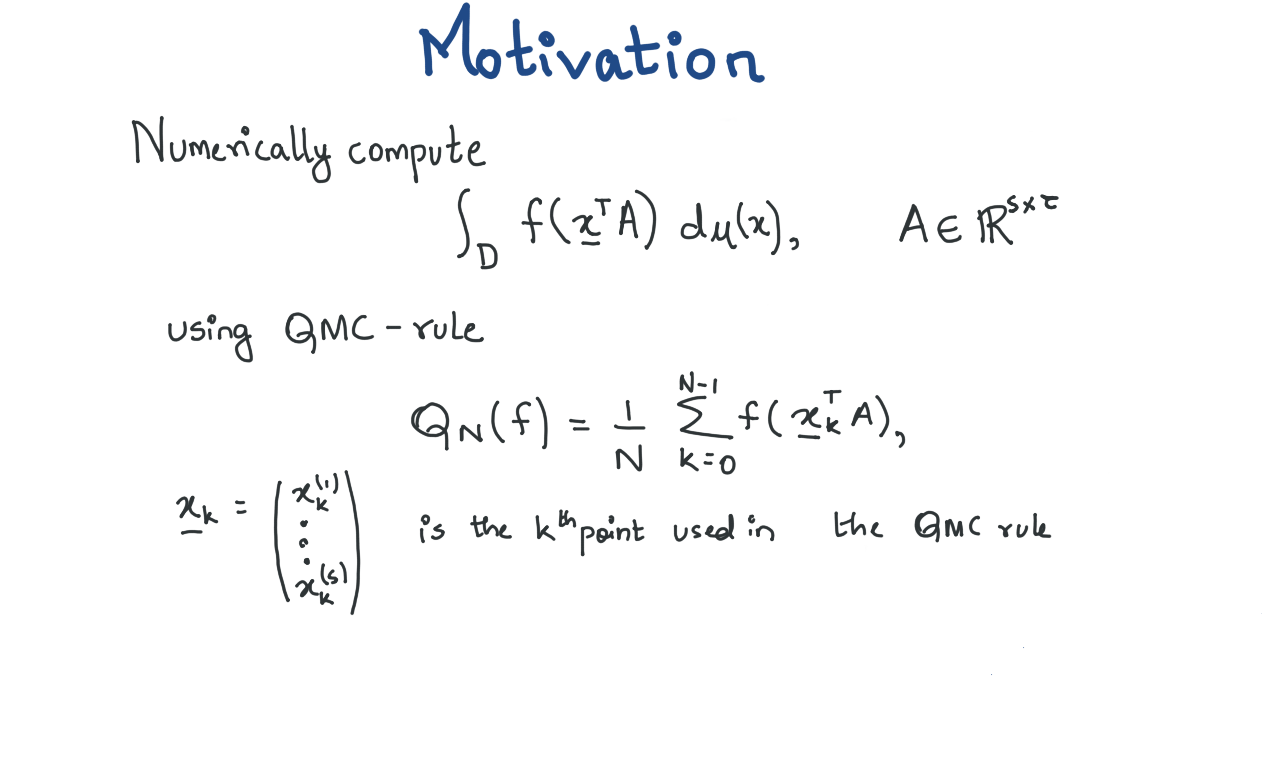 Motivation
Numerically compute
∫_D f(x̲ᵀA) dμ(x), A ∈ ℝ^{s×τ}
using QMC-rule
Q_N(f) = 1/N ∑_{k=0}^{N-1} f(x̲_kᵀ A),
x̲_k = (x_k^{(1)} ⋮ x_k^{(s)}) is the kᵗʰ point used in the QMC rule